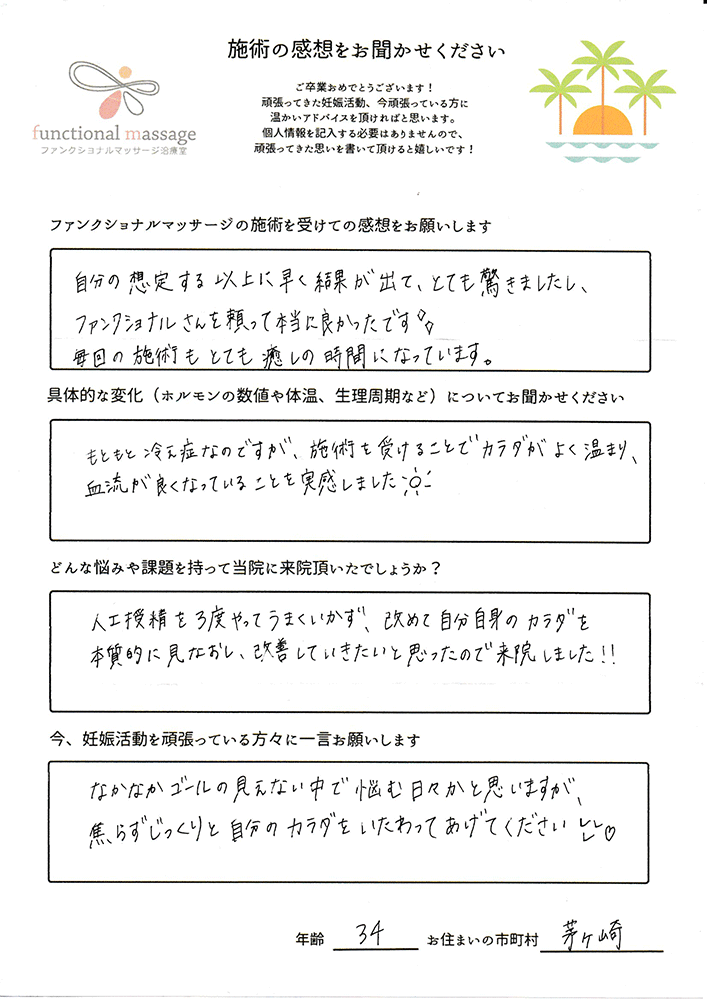 施術の感想をお聞かせください
ご卒業おめでとうございます！
頑張ってきた妊娠活動、今頑張っている方に
温かいアドバイスを頂ければと思います。
個人情報を記入する必要はありませんので、
頑張ってきた思いを書いて頂けると嬉しいです！
functional massage
ファンクショナルマッサージ治療室
ファンクショナルマッサージの施術を受けての感想をお願いします
自分の想定する以上に早く結果が出て、とても驚きましたし、
ファンクショナルさんを頼って本当に良かったです
毎回の施術もとても癒しの時間になっています。
具体的な変化（ホルモンの数値や体温、生理周期など）についてお聞かせください
もともと冷え症なのですが、施術を受けることでカラダがよく温まり、
血流が良くなっていることを実感しました
どんな悩みや課題を持って当院に来院頂いたでしょうか？
人工授精を3度やってうまくいかず、改めて自分自身のカラダを
本質的に見なおし、改善していきたいと思ったので来院しました!!
今、妊娠活動を頑張っている方々に一言お願いします
なかなかゴールの見えない中で悩む日々かと思いますが、
焦らずじっくりと自分のカラダをいたわってあげてください♡
年齢 34 お住まいの市町村 茅ヶ崎